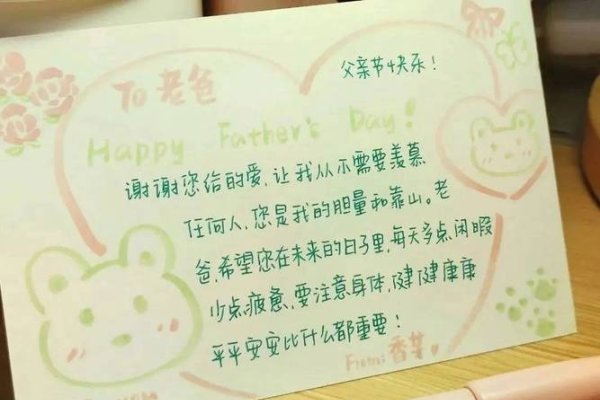 To 老爸
父亲节快乐!
Happy Father's Day!
谢谢您给的爱,让我从不需要羡慕
任何人,您是我的胆量和靠山。老
爸,希望您在未来的日子里,每天多点闲暇
少点疲惫,要注意身体,健健康康
平平安安比什么都重要!
From: 香芋